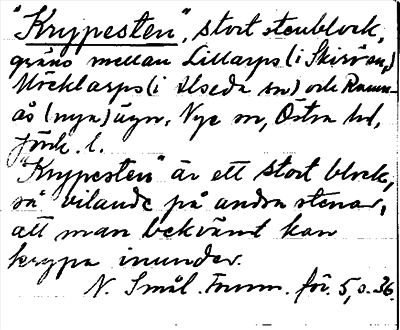 "Krypesten", stort stenblock,
gräns mellan Lillarps (i Skirö sn,)
Möcklarps (i Alseda sn) och Ramn-
ås (nya) ägor, Nye sn, Östra hd,
Jönk. l.
"Krypesten" är ett stort block,
så vilande på andra stenar,
att man bekvämt kan
krypa inunder.
N. Smål. Fornm. för. 5, s. 36.